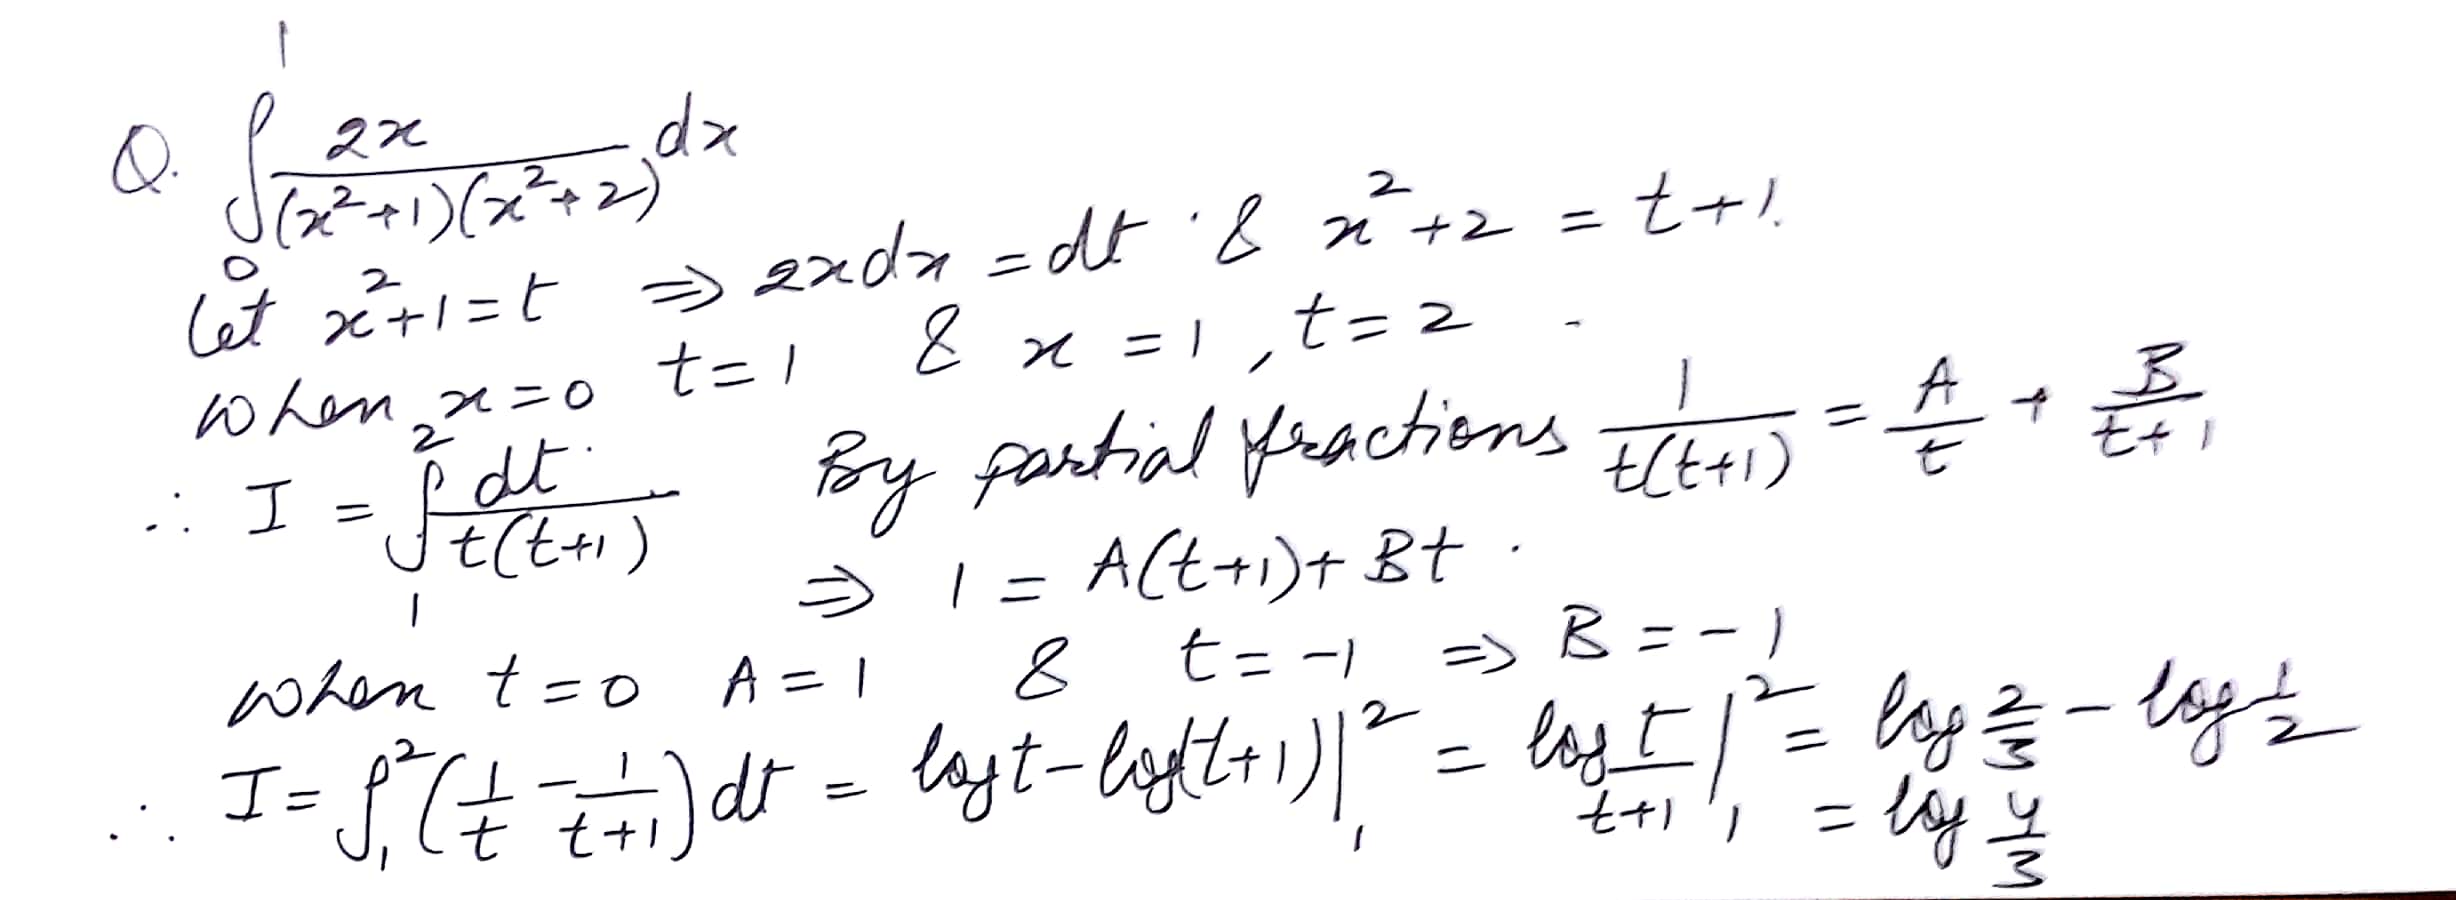 Q. ∫₀¹ 2x/((x²+1)(x²+2)) dx
Let x²+1=t ⇒ 2xdx = dt & x²+2 = t+1.
When x=0 t=1 & x=1, t=2
∴ I = ∫₁² dt/(t(t+1)) By partial fractions 1/(t(t+1)) = A/t + B/(t+1)
⇒ 1 = A(t+1)+Bt.
When t=0 A=1 & t=-1 ⇒ B=-1
∴ I=∫₁² (1/t - 1/(t+1)) dt = logt-log(t+1)|₁² = log t/(t+1)|₁² = log 2/3 - log 1/2
= log 4/3